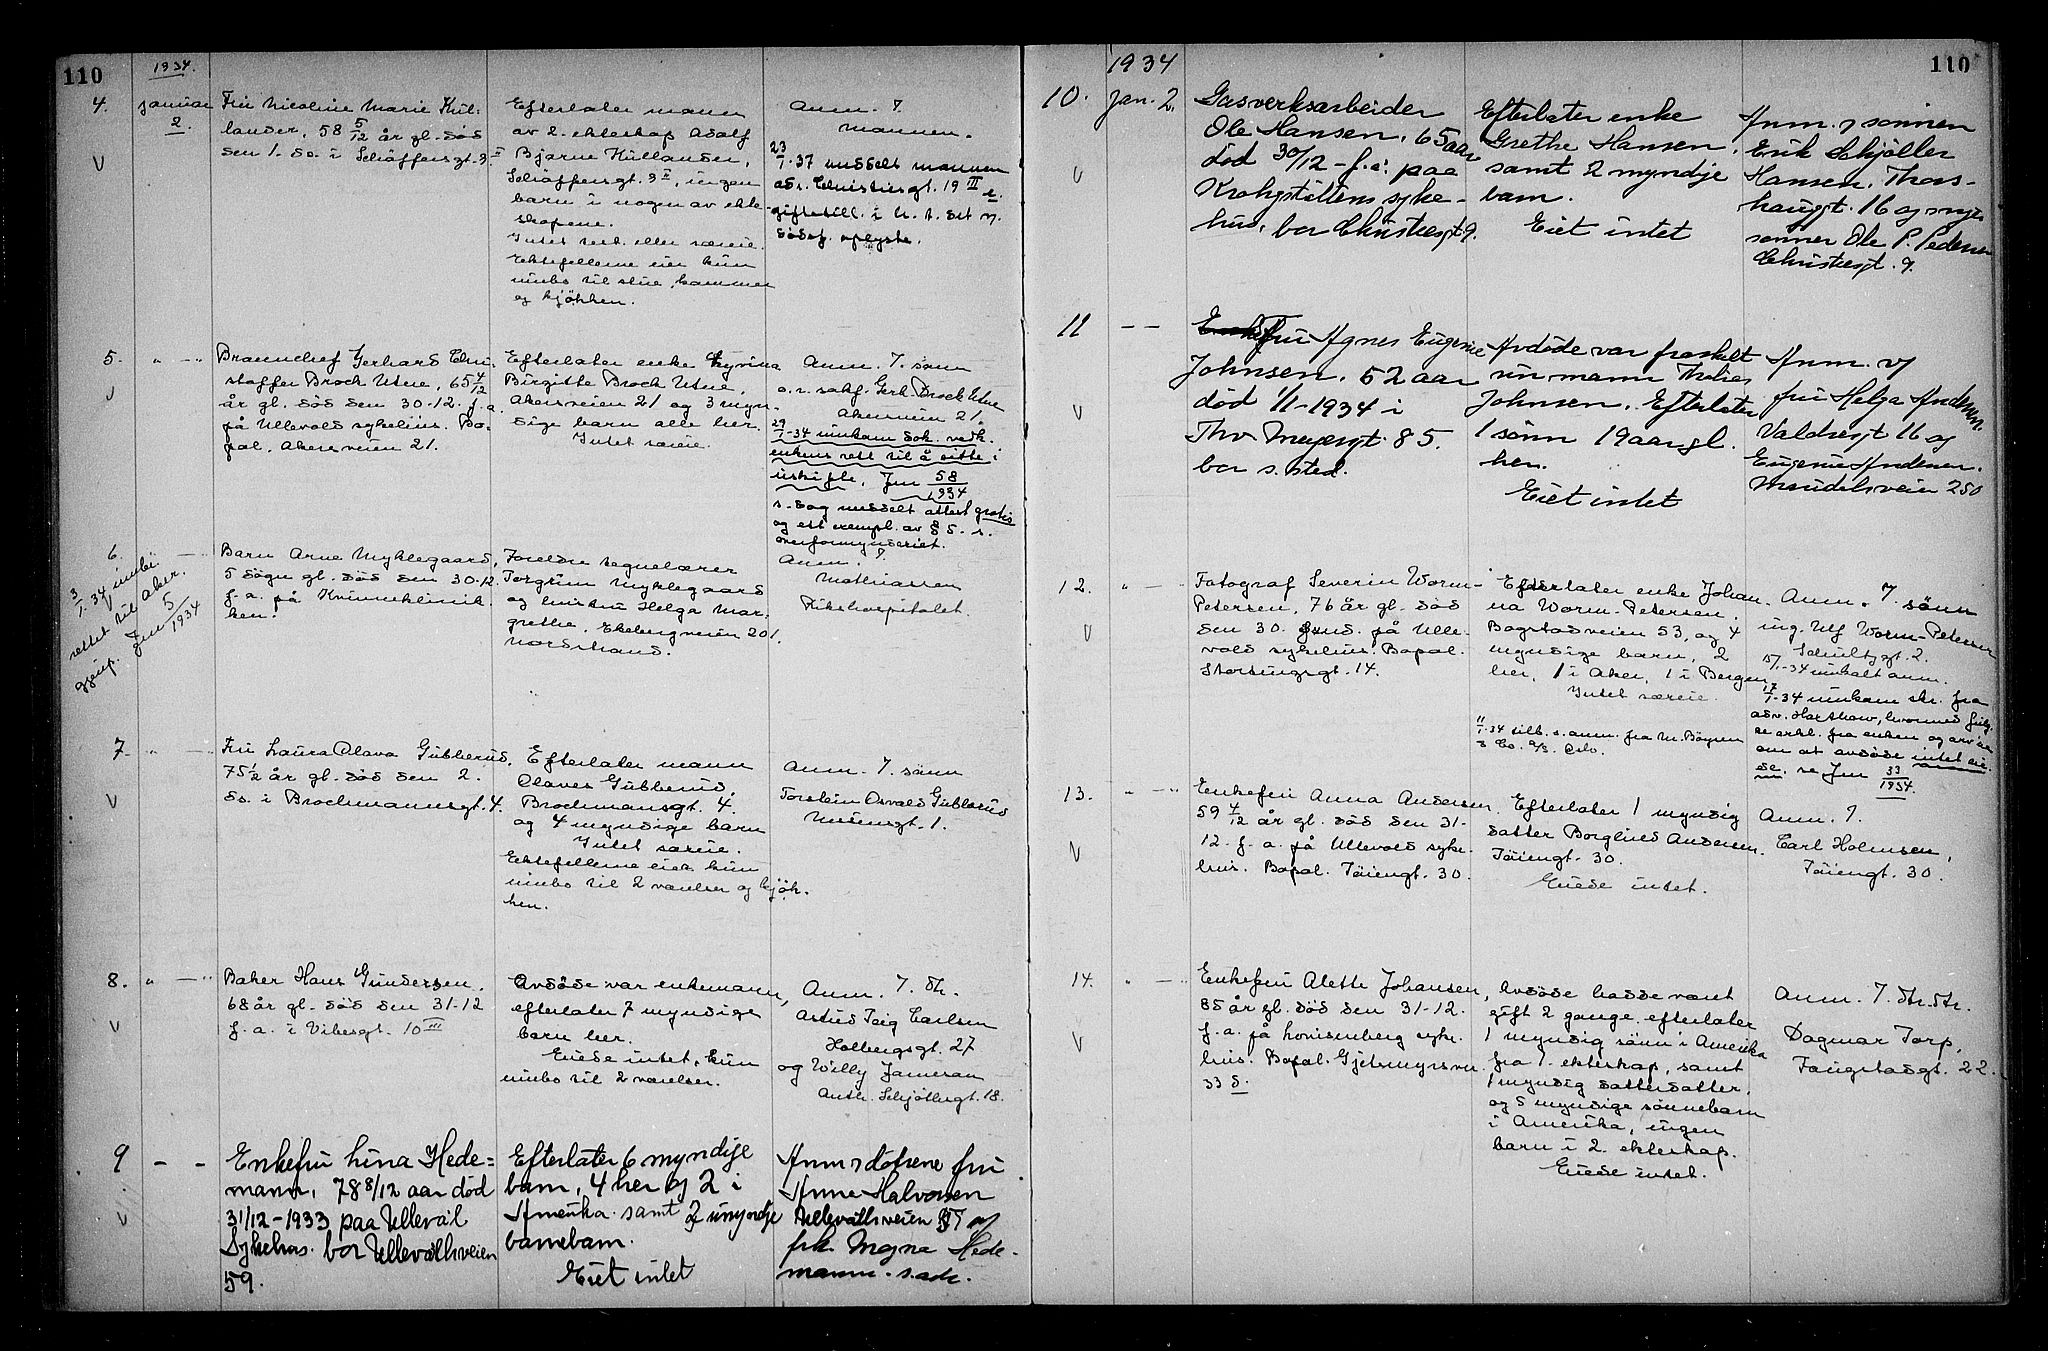 110
1934.
4.
januar
2.
Fru Nicoline Marie Kul-
lander, 58 5/12 år gl. död
den 1. ds. i Schäffersgt. 3 II
Efterlater mann
av 2. ekteskap Adolf
Bjarne Kullander,
Schäffersgt. 3 II, ingen
barn i nogen av ekte-
skapene.
Intet test. eller særeie.
Ektefellerne eier kun
innbo til stue, kammer
og kjökken.
Anm. v.
mannen.
23/1-37 meddelt mannen
adr. Christiesgt. 19 II
giftetill. i h. t. det v.
dödsf. oplyste.
5.
" — "
Brannchef Gerhard Chri-
stoffer Brock Utne, 65 4/12
år gl. död den 30-12. f. a.
på Ullevold sykehus. Bo-
pal. Akersveien 21.
Efterlater enke
Birgitte Brock Utne,
Akersveien 21 og 3 myn-
dige barn alle her.
Intet særeie.
Anm. v. sönn
o.r. sakf. Gerh. Brock Utne
Akersveien 21.
29/1-34 innkom dok. vedk.
enkens rett til å sitte i
uskifte. Jnr 58/1934
s. dag meddelt attest gratis
og ett exempl. av § 5. s.
overformynderiet.
6.
" — "
3/1-34 innbe-
rettet til Aker.
Jnr 5/1934
Barn Arne Myklegaard,
5 dögn gl. död den 30-12.
f. a. på Kvinneklinik-
ken.
Foreldre tegnelærer
Torgrim Myklegaard
og hustru Helga Mar-
grethe, Ekebergveien 201,
Nordstrand.
Anm. v.
Mathiassen
Rikshospitalet.
7.
" — "
Fru Laura Olava Gubberud,
75 1/2 år gl. död den 2.
ds. i Brochmannsgt. 4.
Efterlater mann
Olaves Gubberud,
Brochmansgt. 4.
og 4 myndige barn
Intet særeie.
Ektefellerne eier kun
innbo til 2 værelser og kjök-
ken.
Anm. v. sönn
Torstein Osvald Gubberud
gt. 1.
8.
" — "
Baker Hans Gundersen,
68 år gl. död den 31-12
f. a. i Vibesgt. 10 III
Avdöde var enkemann,
efterlater 7 myndige
barn her.
Eiede intet, kun
innbo til 2 værelser.
Anm. v. dtr.
Astrid Taig Carlsen
Holbergsgt. 27
og Willy Jameran
Anth. Schjöttsgt. 18.
9
— —
Enkefru Lina Hede=
mann, 78 8/12 aar död
31/12 - 1933 paa Ullevål
Sykehus. bor Ullevålsveien
59.
Efterlater 6 myndige
barn, 4 her og 2 i
Amerika samt 2 umyndje
barnebarn.
Eiet intet
Anm v döttrene fru
Anna Halvorsen
Ullevålsveien 59 og
frk. Magna Hede-
mann. s. adr.
1934
110
10.
Jan. 2.
Gasverksarbeider
Ole Hansen, 65 aar
död 30/12 - f. å. paa
Krohgstöttens syke-
hus, bor Christiesgt 9.
Efterlater enke
Grethe Hansen,
samt 2 myndje
barn.
Eiet intet
Anm. v sönnen
Erik Schjöller
Hansen. Thors-
haugt. 16 og
sönner Ole P. Pedersen
Christiesgt. 9.
11
— —
Fru Agnes Eugenie
Johnsen. 52 aar
död 1/1-1934 i
Thv. Meyersgt. 85.
bor s. sted.
Avdöde var fraskilt
sin mann
Johnsen. Efterlater
1 sönn 19 aar gl.
her.
Eiet intet
Anm. v
fru Helga Andersen.
Valdresgt 16 og
Eugenie Andersen.
250
12.
" — "
Fotograf Severin Worm-
Petersen, 76 år gl. död
den 30. f. md. på Ulle-
vold sykehus. Bopal.
Stortingsgt. 14.
Efterlater enke Johan-
na Worm-Petersen,
Bogstadveien 53, og 4
myndige barn, 2
her, 1 i Aker, 1 i Bergen
Intet særeie.
11/1-34 tilb. s. anm. fra M. Bögen
& Co. A/S. Oslo.
Anm. v. sönn
ing. Ulf Worm-Petersen
Schultzgt. 2.
5/1-34 innkalt anm.
17/1-34 innkom skr. fra
adv. Harthow, hvormed fulg-
te erkl. fra enken og arv'ne
om at avdöde intet eie-
de. se Jnr 33/1934.
13.
" — "
Enkefru Anna Andersen
59 4/12 år gl. död den 31-
12. f. a. på Ullevold syke-
hus. Bopal. Töiengt. 30.
Efterlater 1 myndig
datter Borghild Andersen.
Töiengt. 30.
Eiede intet.
Anm. v.
Carl Holmsen,
Töiengt. 30.
14.
" — "
Enkefru Alette Johansen,
85 år gl. död den 31-12.
f. a. på Lovisenberg syke-
hus. Bopal. Gjetemyrsvei
33 d.
Avdöde hadde vært
gift 2 gange. efterlater
1 myndig sönn i Amerika
fra 1. ekteskap, samt
1 myndig datterdatter,
og 5 myndige sönnebarn
i Amerika, ingen
barn i 2. ekteskap.
Eiede intet.
Anm. v. dtr. dtr.
Dagmar Torp,
Faugstadgt. 22.